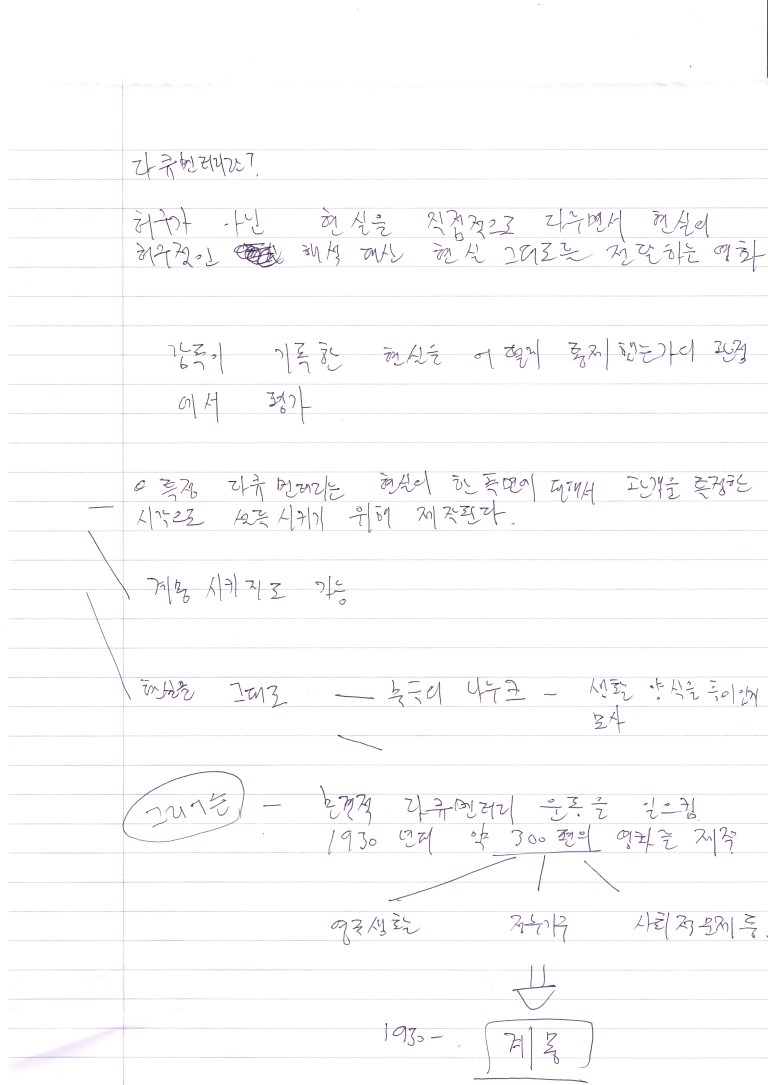 다큐멘터리란?
허구가 아닌 현실을 직접적으로 다루면서 현실의
허구적인 해석 대신 현실 그대로를 전달하는 영화
감독이 기록한 현실을 어떻게 통제했는가의 관점
에서 평가
특정 다큐멘터리는 현실의 한 측면에 대해서 관객을 특정한
시각으로 설득시키기 위해 제작된다.
계몽 시키기도 가능
현실을 그대로 — 북극의 나누크 - 생활 양식을
묘사
그리어슨 - 본격적 다큐멘터리 운동을 일으킴
1930 년대 약 300 편의 영화를 제작
영국생활 정부기구 사회적문제 등.
1930-. 계몽